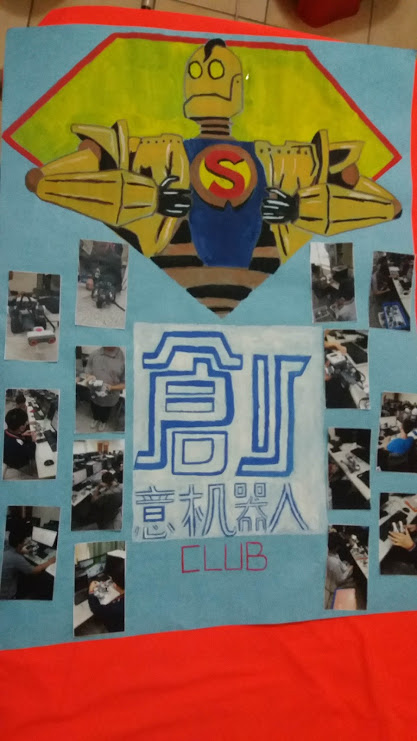 S
創
意机器人
CLUB